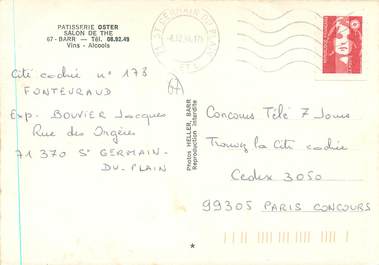 PATISSERIE OSTER
SALON DE THE
67 - BARR — Tél. 08.92.49
Vins - Alcools
Cité codée n° 178
FONTEVRAUD
Exp. BOUVIER Jacques
Rue des Orgères
71 370 St GERMAIN -
DU - PLAIN
67
Photos HELLER, BARR
Reproduction interdite
71 ST GERMAIN DU PLAIN
Concours Télé 7 Jours
Trouvez la Cité codée
Cedex 3050
99305 PARIS CONCOURS
*